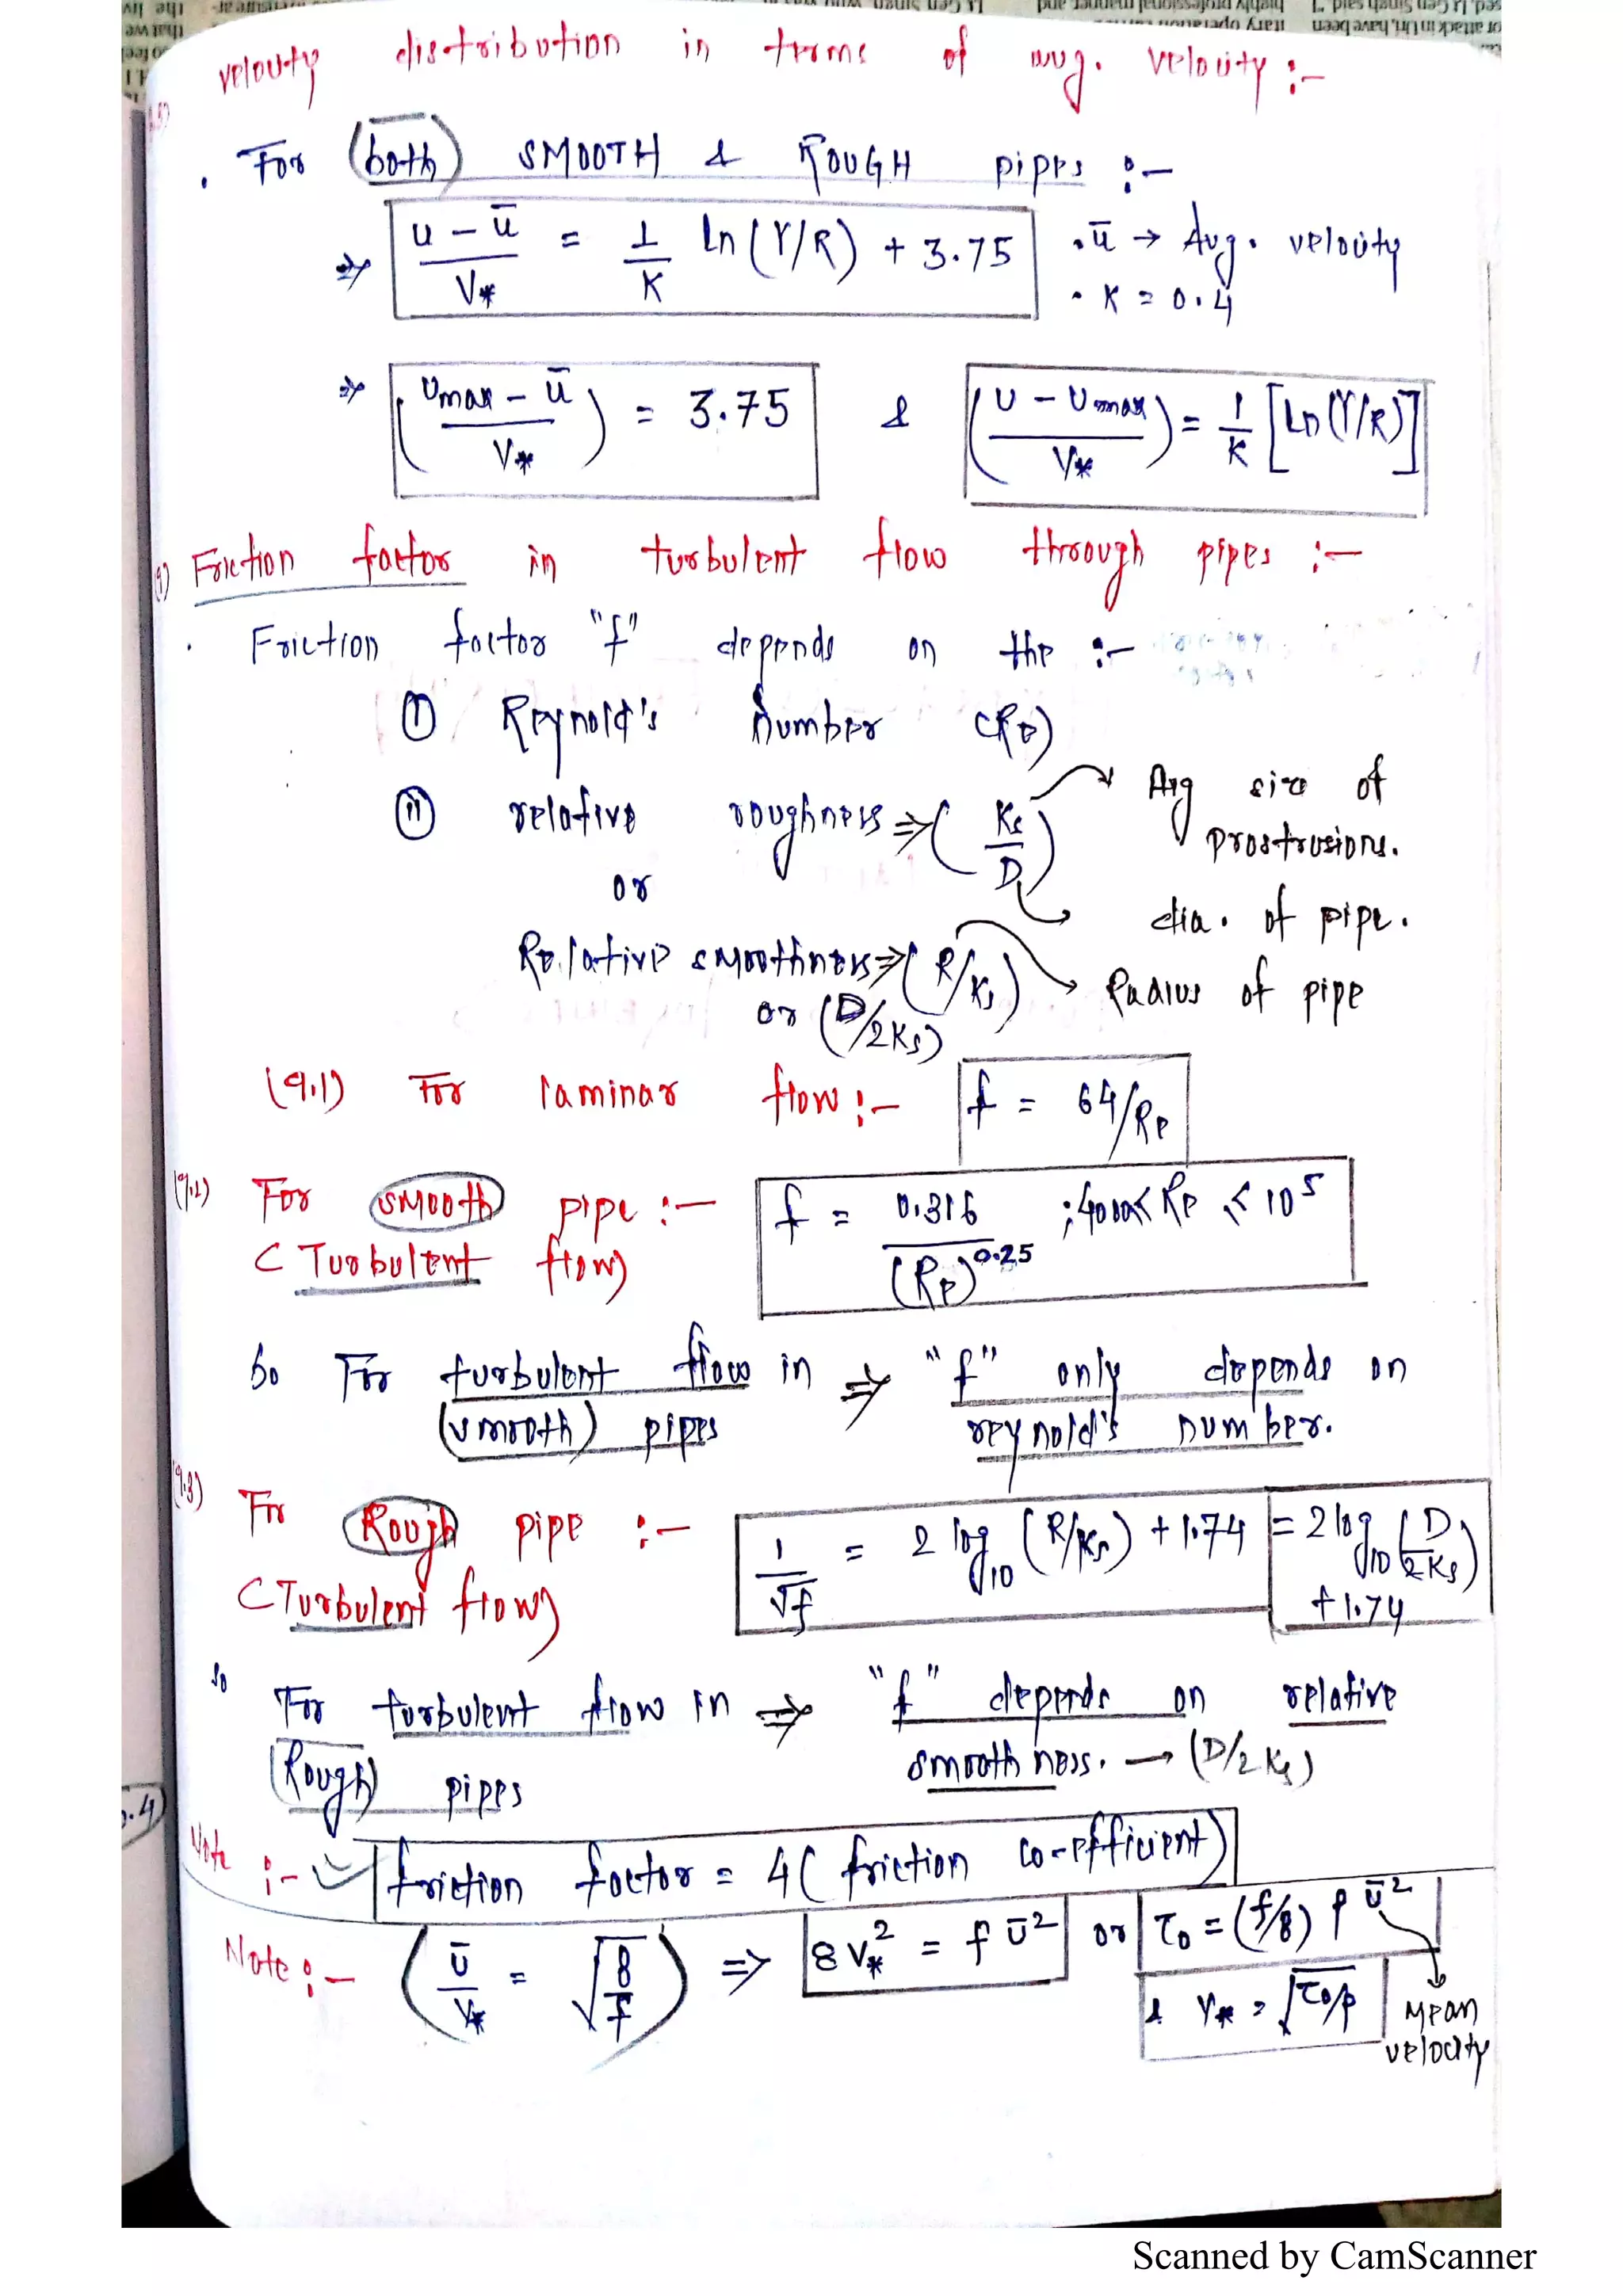 velocity distribution in terms of avg. velocity :-
. For (both) SMOOTH & ROUGH pipes :-
⇒ (u - ū)/V* = 1/K ln (Y/R) + 3.75 • ū → Avg. velocity
• K = 0.4
⇒ ((Umax - ū)/V*) = 3.75 & ((U - Umax)/V*) = 1/K [Ln (Y/R)]
9) Friction factor in turbulent flow through pipes :-
. Friction factor "f" depends on the :-
(I) Reynold's Number (Re)
(II) relative roughness ⇒ (Ks/D) → Avg size of protrusions.
→ dia. of pipe.
or
Relative smoothness ⇒ (R/Ks) → Radius of pipe
or (D/2Ks)
(9.1) For laminar flow :- f = 64/Re
(9.2) For (smooth) pipe :- f = 0.316/(Re)^0.25 ; 4000< Re < 10^5
(Turbulent flow)
So For turbulent flow in ⇒ "f" only depends on
(smooth) pipes reynold's number.
(9.3) For (Rough) pipe :- 1/√f = 2 log10 (R/Ks) + 1.74 = 2 log10 (D/2Ks) + 1.74
(Turbulent flow)
So For turbulent flow in ⇒ "f" depends on relative
(Rough) pipes smoothness. → (D/2Ks)
Note :- friction factor = 4 (friction co-efficient)
Note :- (ū/V* = √(8/f)) ⇒ 8 V*² = f ū² or τ0 = (f/8) ρ ū²
& V* = √(τ0/ρ) Mean
velocity
Scanned by CamScanner